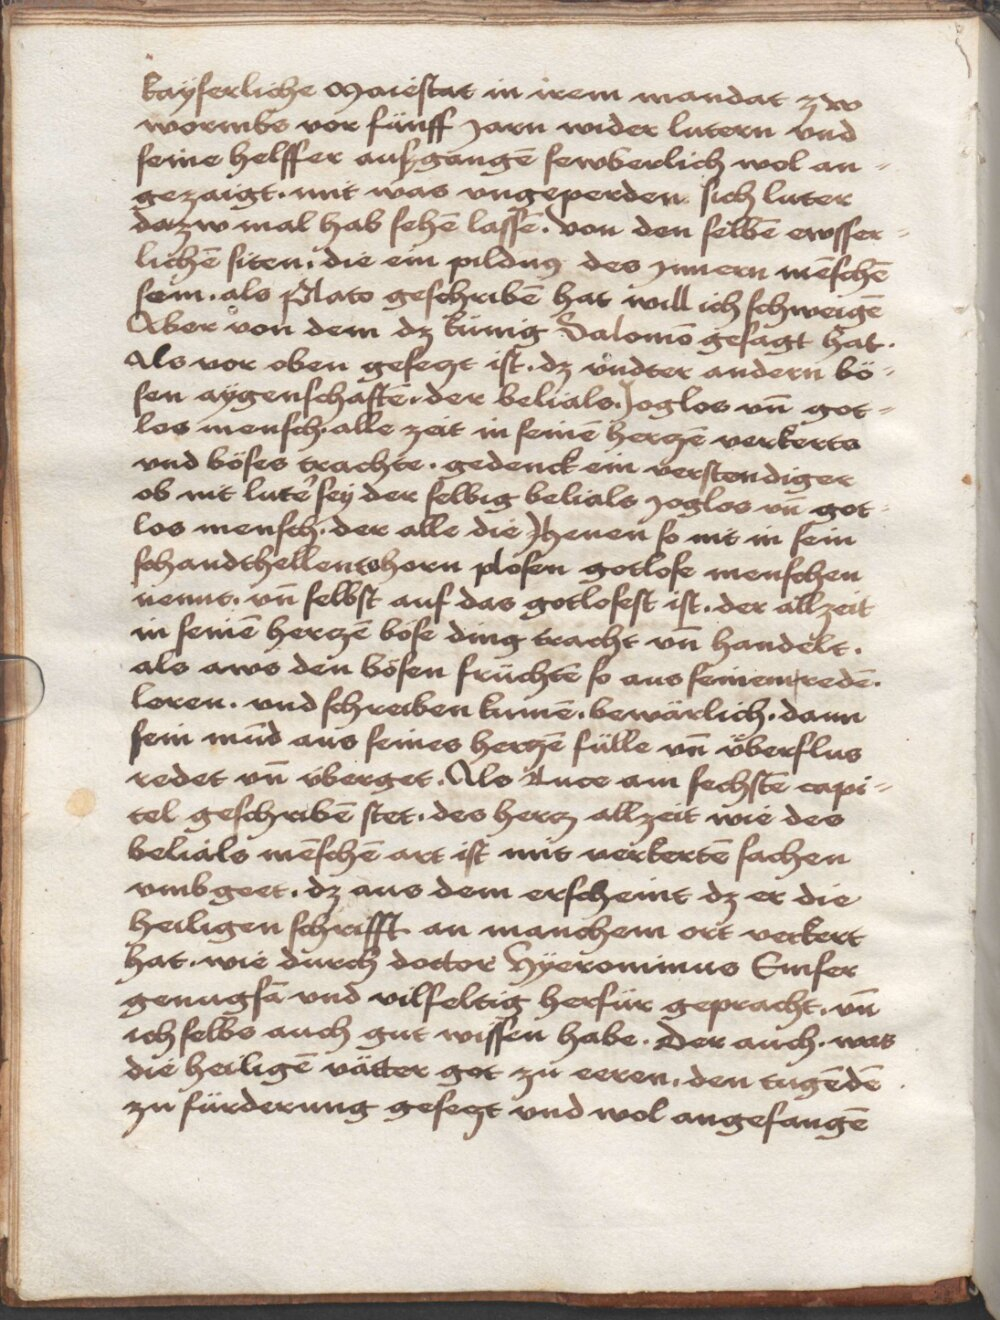 kaÿserliche Maiestat in irem mandat zw
wormbs vor fünff Jarn wider lutern vnd
seine helffer auszgangē sewberlich wol an=
gezaigt. mit was vngeperden sich luter
dazw mal hab sehē lassē. von den selbē ewsser=
lichē siten, die ein pildnꝯ des Innern mēschē
sein. als Plato geschribē hat will ich schweigē
Aber von dem dz künig Salomō gesagt hat.
Als vor oben gesetzt ist. dz vndter andern bö=
sen aÿgenschaftē, der belials. Joglos vñ got=
los mensch. alle zeit in seinē hertzē verkerts
vnd böses trachte. gedenck ein verstendiger
ob nit lutē' sey der selbig belials Joglos vñ got=
los mensch. der alle die Jhenen so nit in sein
schandthellentshorn plosen gotlose menschen
nennt. vñ selbst auf das gotlosest ist. der allzeit
in seinē hertzē böse ding tracht vñ handelt.
als aws den bösen früchtē so aus seinem redē.
leren. vnd schreiben kumē. bewärlich. dann
sein mūd aus seines hertzē fülle vñ überflus
redet vñ überget. Als Luce am sechstē capi=
tel geschribē stet. des hertz allzeit wie des
belials mēschē art ist mit verkertē sachen
vmbgeet. dz aus dem erscheint dz er die
heiligen schrifft an manchem ort verkert
hat. wie durch doctor Hÿeronimus Emser
genugsā vnd vilfeltig herfür gepracht. vñ
ich selbs auch gut wissen habe. Der auch. was
die heiligē vätter got zu eeren, den tugēdē
zu fürderung gesetzt vnd wol angefangē